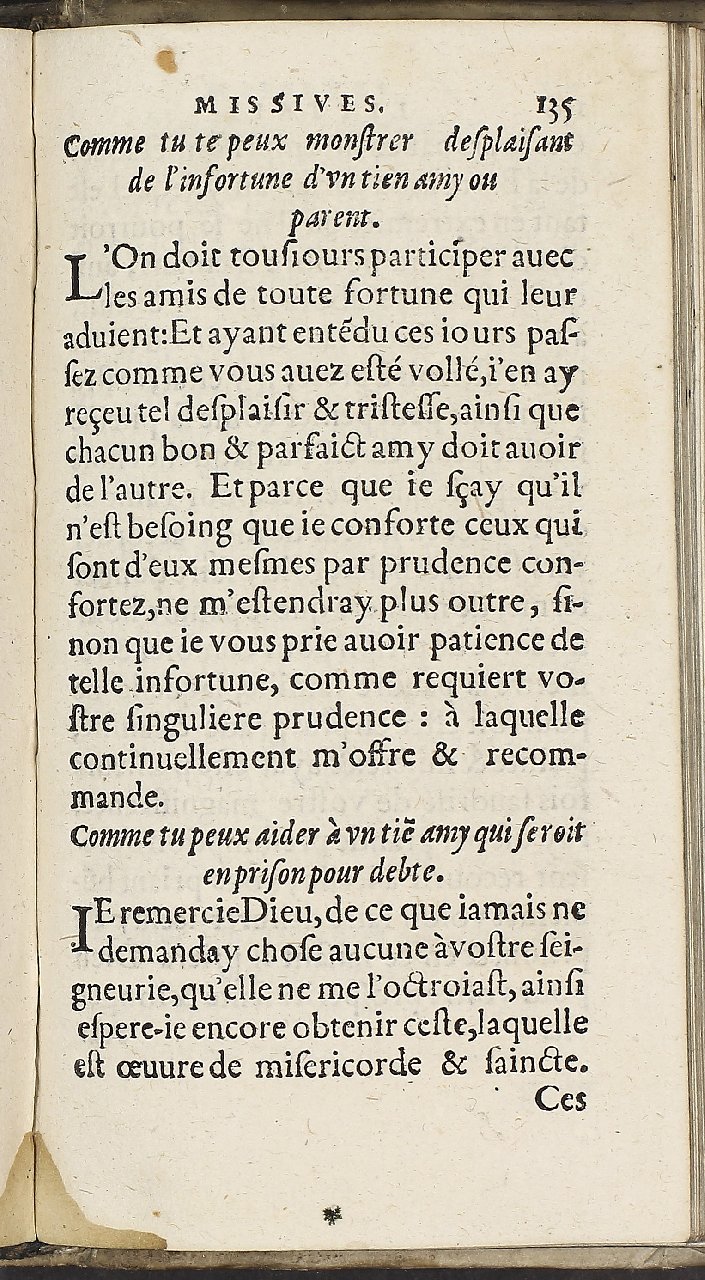 MISSIVES. 135
Comme tu te peux monſtrer deſplaiſant
de l'infortune d'vn tien amy ou
parent.
L'On doit touſiours participer auec
les amis de toute fortune qui leur
aduient:Et ayant entẽdu ces iours paſ-
ſez comme vous auez eſté vollé,i'en ay
reçeu tel deſplaiſir & triſteſſe,ainſi que
chacun bon & parfaict amy doit auoir
de l'autre. Et parce que ie ſçay qu'il
n'eſt beſoing que ie conforte ceux qui
ſont d'eux meſmes par prudence con-
fortez,ne m'eſtendray plus outre, ſi-
non que ie vous prie auoir patience de
telle infortune, comme requiert vo-
ſtre ſinguliere prudence : à laquelle
continuellement m'offre & recom-
mande.
Comme tu peux aider à vn tiẽ amy qui ſeroit
en priſon pour debte.
IE remercie Dieu,de ce que iamais ne
demanday choſe aucune à voſtre ſei-
gneurie,qu'elle ne me l'octroiaſt, ainſi
eſpere-ie encore obtenir ceſte,laquelle
eſt œuure de miſericorde & ſaincte.
Ces